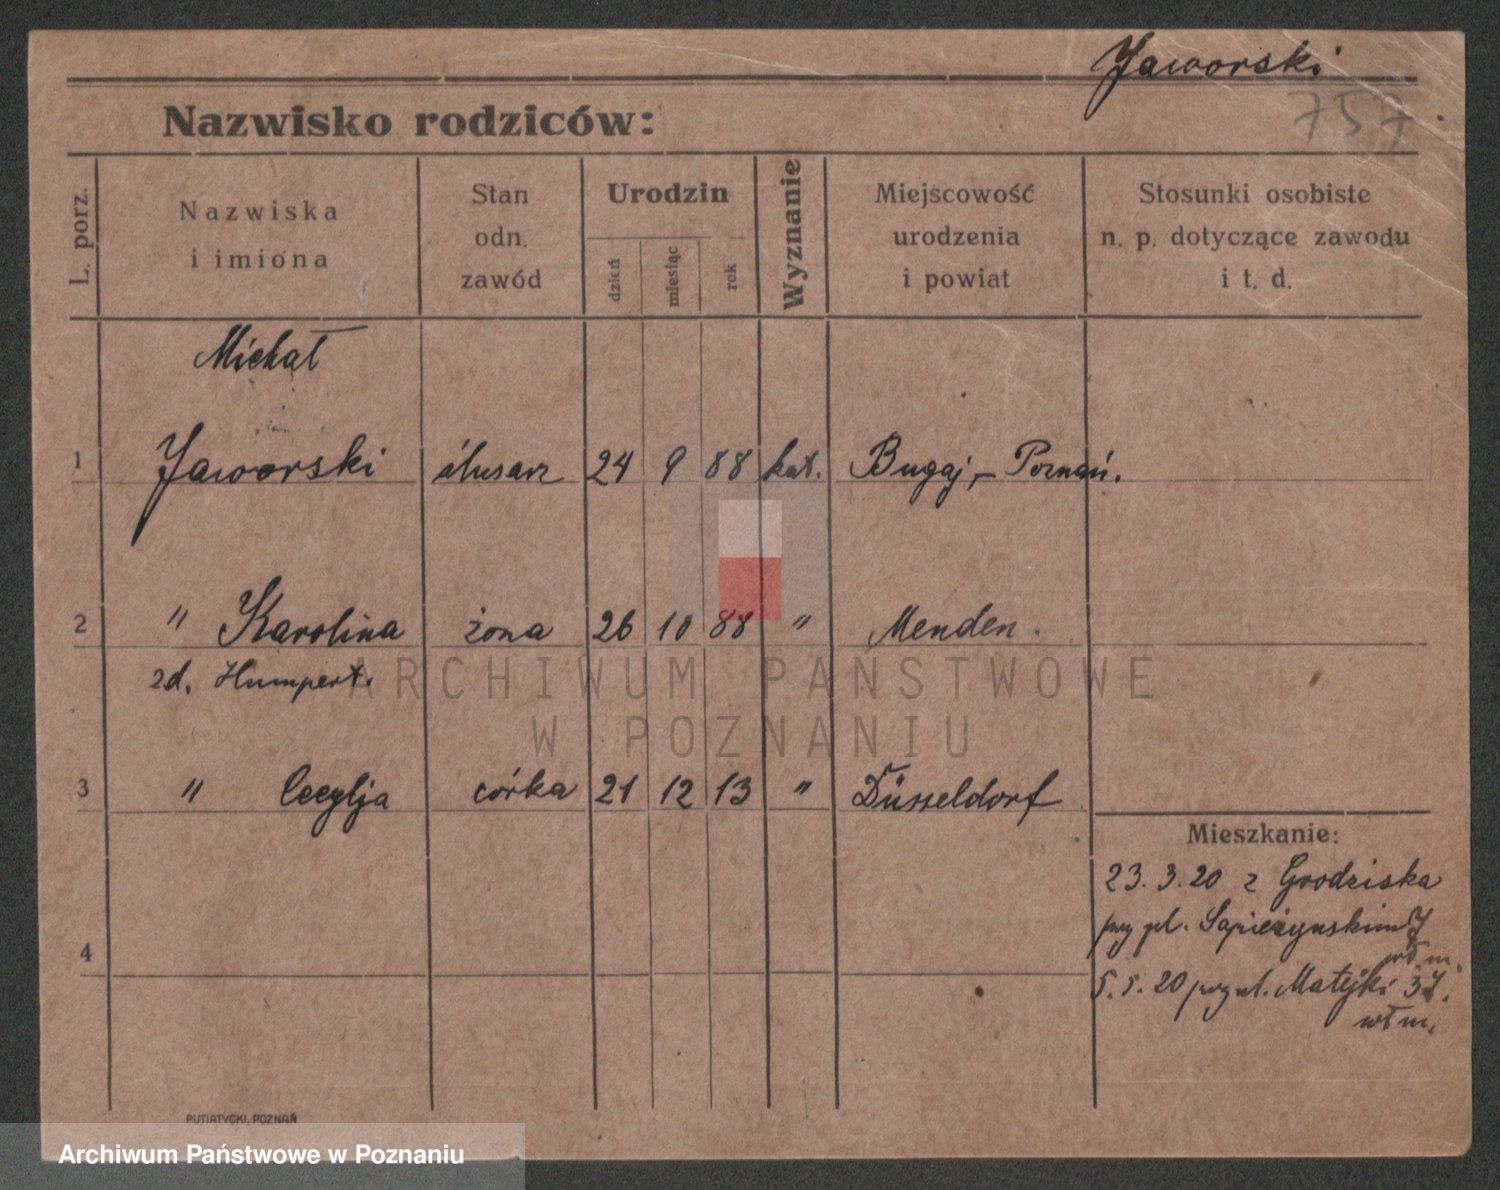 Jaworski
757.
Nazwisko rodziców:
L. porz.
Nazwiska
i imiona
Stan
odn.
zawód
Urodzin
dzień
miesiąc
rok
Wyznanie
Miejscowość
urodzenia
i powiat
Stosunki osobiste
n. p. dotyczące zawodu
i t. d.
Michał
1 Jaworski ślusarz 24 9 88 kat. Bugaj, - Poznań.
2 " Karolina żona 26 10 88 " Menden.
zd. Humpert.
ARCHIWUM PAŃSTWOWE
W POZNANIU
3 " Cecylja córka 21 12 13 " Düsseldorf
Mieszkanie:
23. 3. 20 z Grodziska
przy pl. Sapieżynskim
wł. m.
4
5. 5. 20 przy ul. Matejki
wł m.
PUTIATYCKI, POZNAŃ
Archiwum Państwowe w Poznaniu